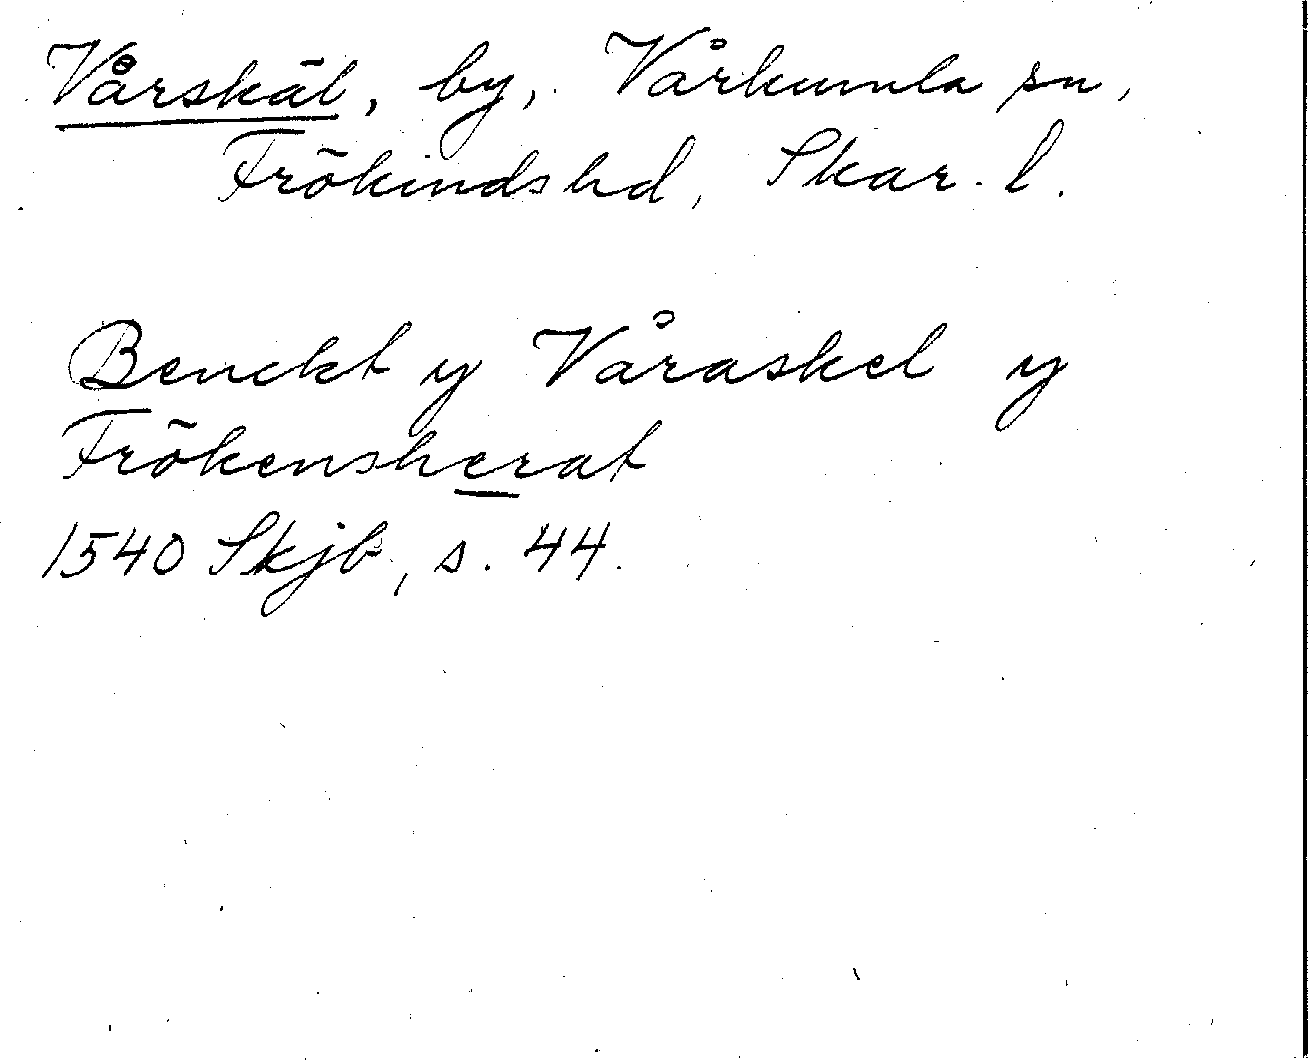 Vårskäl, by, Vårkumla sn,
Frökinds hd, Skar. l.
Benckt y Våraskel y
Frökensherat
1540 Skjb, s. 44.